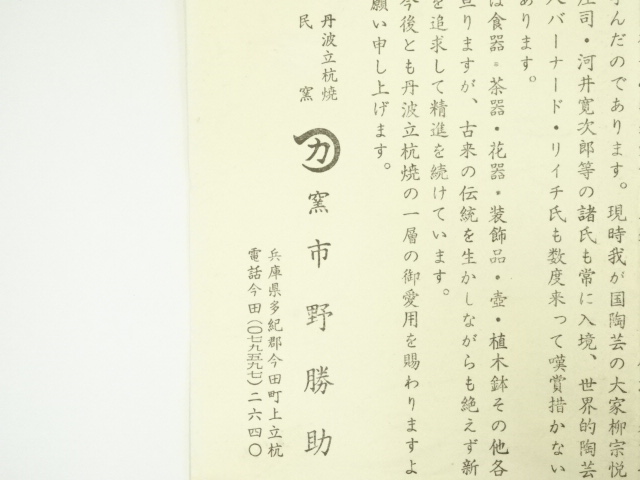 んだのであります。現時我が国陶芸の大家柳宗悦
庄司・河井寛次郎等の諸氏も常に入境、世界的陶芸
バーナード・リイチ氏も数度来って嘆賞措かない
あります。
は食器・茶器・花器・装飾品・壺・植木鉢その他各
亘りますが、古来の伝統を生かしながらも絶えず新
を追求して精進を続けています。
今後とも丹波立杭焼の一層の御愛用を賜わりますよ
願い申し上げます。
丹波立杭焼
民窯
カ窯市野勝助
兵庫県多紀郡今田町上立杭
電話今田(〇七九五九七)二六四〇